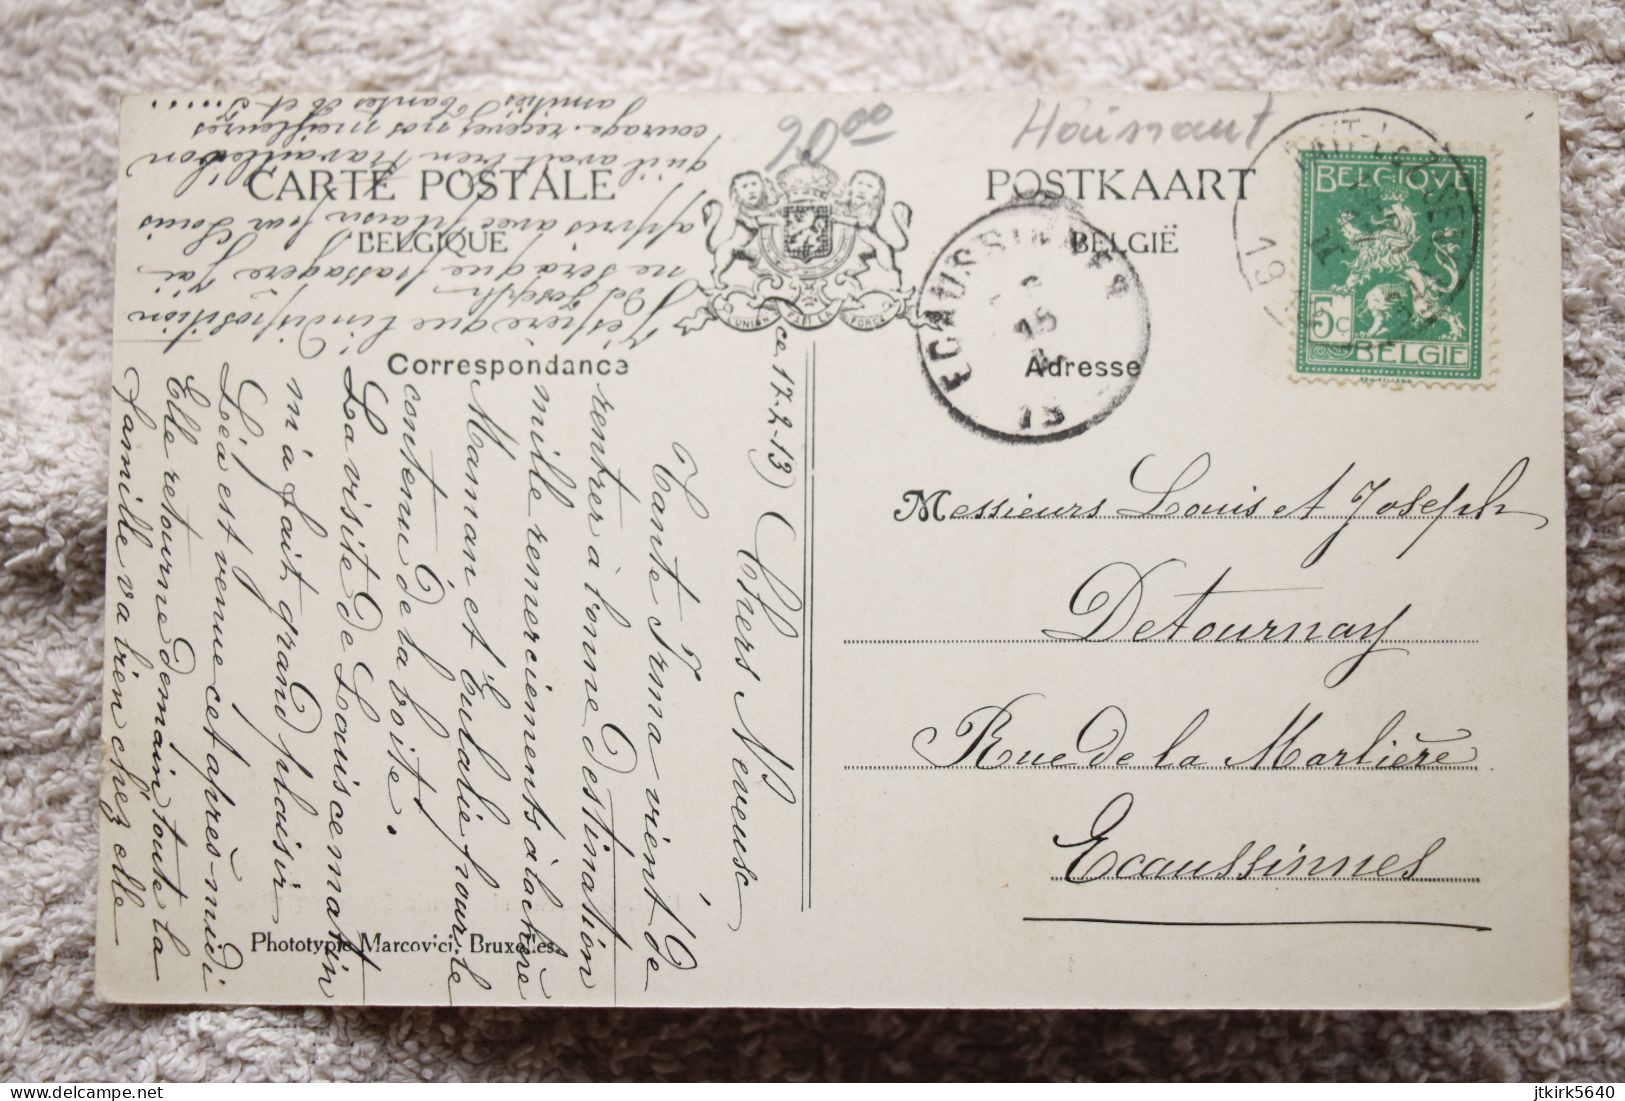 CARTE POSTALE
POSTKAART
BELGIQUE
BELGIË
L'UNION FAIT LA FORCE
20 00
Hainaut
Correspondance
Adresse
ECAUSSINNES
15
13
BELGIQUE
5c
BELGIE
Messieurs Louis et Joseph
Detournay
Rue de la Marlière
Ecaussinnes
ce 17-2-13) Chers Neveux
Tante Irma vient de
rentrer à bonne destination
mille remerciements à la chère
Maman et Eulalie pour le
contenu de la boîte.
La visite de Louis ce matin
m'a fait grand plaisir
Léa est venue cet après-midi
Elle retourne demain toute la
famille va bien chez elle
J'espère que l'indisposition
de Joseph
ne sera que passagère j'ai
appris avec plaisir par Louis
qu'il avait bien travaillé bon
courage. recevez nos meilleures
amitiés Tantes et J....
Phototypie Marcovici, Bruxelles.
jtkirk5640